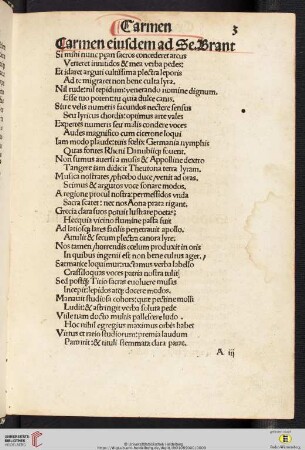 Carmen 3
Carmen eiusdem ad Se. Brant
Si mihi nunc pgari sacros concederet arcus
Verteret inuitidos & mea verba pedes:
Et idaret arguti cultissima plectra leporis
Ad te migraret non bene culta lyra.
Nil rude: nil tepidum: venerando nomine dignum.
Esse tuo potentū quia dulce canis.
Siue velis numeris facundos nectere sensus
Seu lyricis chordis: optimus ante vales
Expertes numeris seu mūlis condere voces
Audes magnifico cum cicerone loqui
Iam modo plaudentius fœlix Germania nymphis
Quas fontes Rheni Danubiicq fouent,
Non sumus auersi a musis & Appolline dextro
Tangere iam didicit Theutona terra lyram.
Musica nostrates phœbo duce, venit ad oras,
Scimus & arguros voce sonare modos.
A regione procul nostra: permessidos vnda
Sacra scatet: nec nos Aona prata rigant.
Grecia clara suos potuit lustrare poeta:
Hecquis vicino flumine passa sinit
Ad latiosq lares facilis penetrauit apollo.
Attulit & secum plectra canora lyre:
Nos tamen, horrendis cœlum produxit in oris
In quibus ingenii est non bene cultus ager,
Sarmatice loquimur: ractamus verba labello
Crassiloquas voces patria nostra tulit
Sed postq̄ Ticio sacras euoluere musas
Incepit: lepidos atq docere modos.
Manauit studiosa cohors: que pectine molli
Ludit: & astringit verba soluta pede
Vile tuam docto multis pallescere ludo.
Hoc nihil egregius maximus orbis habet
Virtus et ratio studiorum: premia laudum
Parturit: & tituli stemmata clara parat.
A iij
UNIVERSITÄTS-BIBLIOTHEK HEIDELBERG
© Universitätsbibliothek Heidelberg